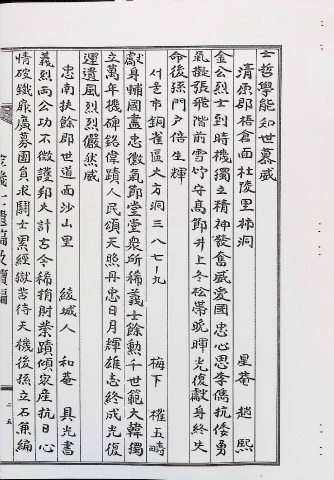 士哲學能知世慕威
淸原郡梧倉面杜陵里柿洞 星菴 趙熙
金公烈士到時機獨立精神發奮威愛國忠心思李儁抗倭勇
氣擬張飛階前雪竹守高節井上冬松帶晚暉光復獻身終失
命後孫門戶倍生輝
서울市銅雀區大方洞三八七-九 梅下 權五疇
獻身輔國盡忠徽氣節堂堂衆所稀義士餘勳千世範大韓獨
立萬年機碑銘偉蹟人民頌天照丹忠日月輝雄志終成光復
運遺風烈烈儼然威
忠南扶餘郡世道面沙山里 綾城人 和菴 具光書
義烈兩公功不微護邦大計古今稀捐財業蹟傾家產抗日心
情破鐵扉廣募團員求鬪士累經獄苦待天機後孫立石兼編
二五